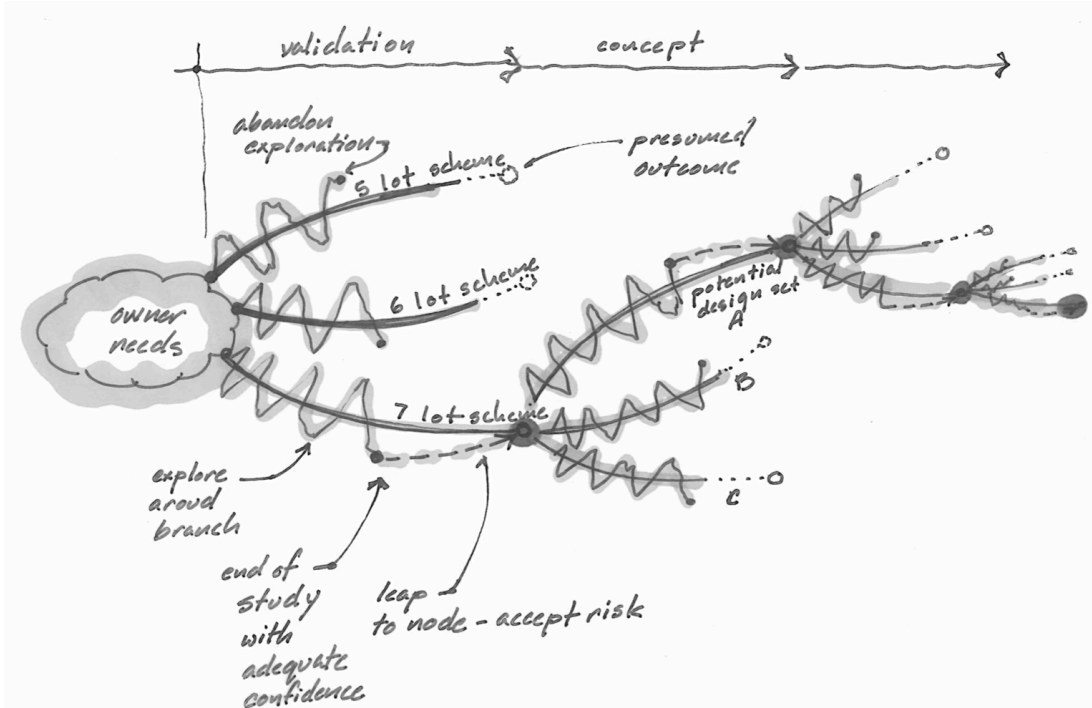 validation
concept
abandon
exploration
5 lot scheme
presumed
outcome
6 lot scheme
owner
needs
potential
design set
A
7 lot scheme
B
C
explore
aroud
branch
end of
study
with
adequate
confidence
leap
to node - accept risk